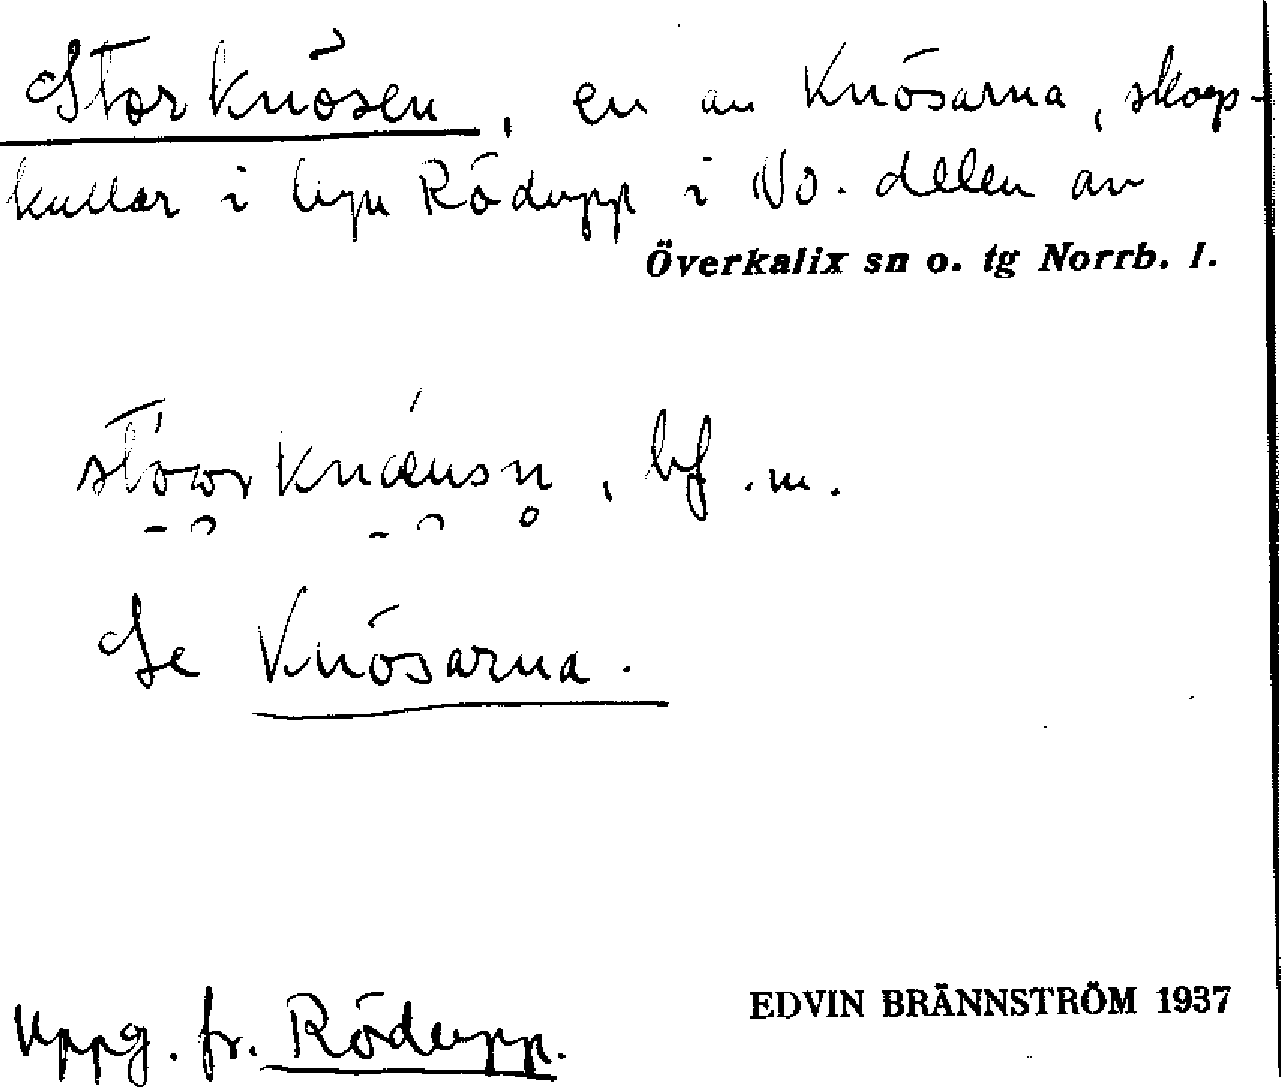 Storknösen, en av Knösarna, skogs-
kullar i byn Rödupp i NO. delen av
Överkalix sn o. tg Norrb. l.
bf. m.
Se Knösarna.
Uppg. fr. Rödupp.
EDVIN BRÄNNSTRÖM 1937